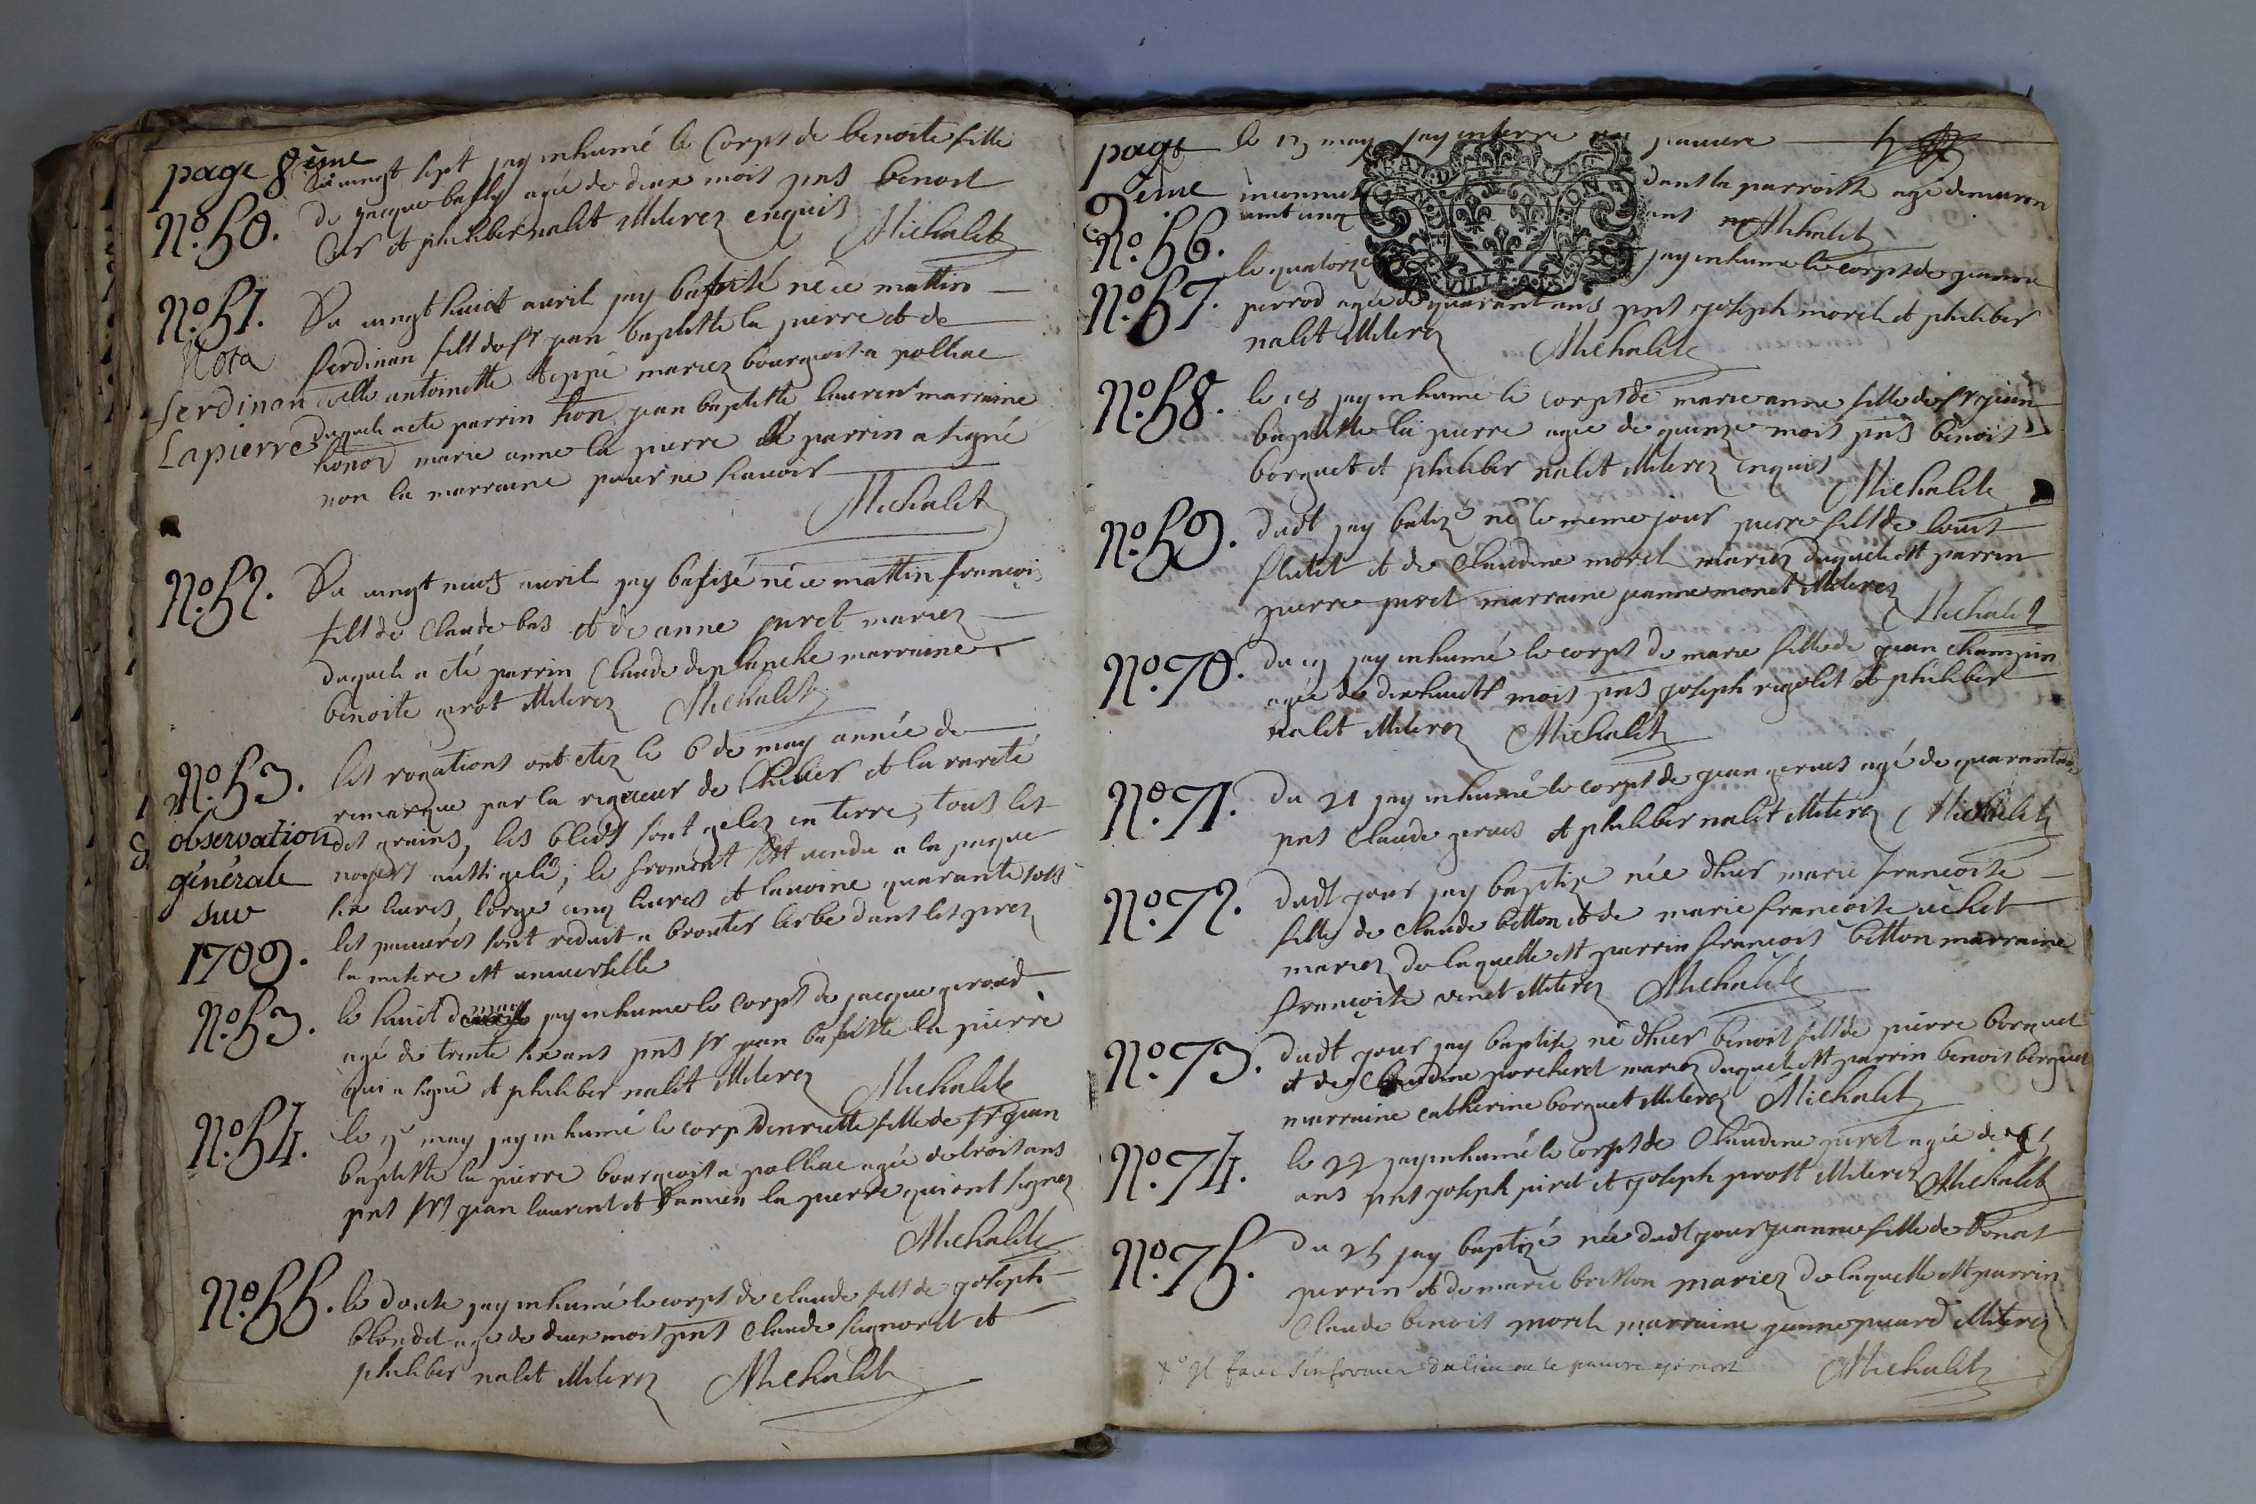 page 8ème
Du vingt sept jay inhumé le Corps de benoite fille
No. 50.
de jacque bally agée de deux mois pnts benoit
Cus et philiber nalet illiterez enquis Michalet
No. 51.
Nota
Ferdinan
Lapierre
Du vingt huict avril jay baptisé né ce mattin
ferdinan fils de sr jean baptiste la pierre et de
delle antoinette teppe mariez bourgeois a polliac
duquel a eté parrin hon. jean baptiste laurent marraine
honor. marie anne la pierre le parrin a signé
non la marraine pour ne scavoir
Michalet
No. 52.
Du vingt neuf avril jay batisé né ce mattin françois
fils de Claude bas et de anne puret mariez
duquel a eté parrin Claude deplanche marraine
benoite grot illiterez Michalet
No. 53.
observation
générale
sur
1709.
les rogations ont etez le 6 de may année de
remarque par la rigueur de lhiver et la rareté
des grains, les bleds sont gelez en terre, tous les
noyers aussi gelé; le froment sest vendu a la paque
six livres, lorge cinq livres et lavoine quarante sols
les pauvres sont reduit a brouter lerbe dans les prez
la misere est universelle
No. 53.
le huict de may jay inhumé le corps de jacque giroud
agé de trente six ans pnts sr jean baptiste la pierre
qui a signé et philiber nalet illiterez Michalet
No. 54.
le may jay inhumé le corps denriette fille de sr jean
baptiste la pierre bourgeois a polliac agée de trois ans
pnts srs jean laurent et Damien la pierre qui ont signez
Michalet
No. 55.
le douse jay inhumé le corps de claude fils de joseph
blondet agé de deux mois pnts Claude signoret et
philiber nalet illiterez Michalet
page
9ème
le 13 may jay enterré un pauvre
inconnus dans la parroisse agé denviron
No. 56.
vint cinq ans Michalet
No. 57.
le quatorze jay inhumé le corps de jeanne
perrod agée de quarant ans pnts joseph morel et philiber
nalet illiterez Michalet
No. 58.
le 18 jay inhumé le corps de marie anne fille de sr jean
baptiste la pierre agée de quinze mois pnts benois
borquet et philiber nalet illiterez enquis Michalet
No. 59.
dudt jay batizé né le meme jour pierre fils de louis
flutet et de Claudine morel mariez duquel est parrin
pierre puret marraine jeanne monet illiterez
Michalet
No. 70.
du 19 jay inhumé le corps de marie fille de jean champin
agée de dixhuict mois pnts joseph rigolet et philiber
nalet illiterez Michalet
No. 71.
du 21 jay inhumé le corps de jean gervais agé de quarant ans
pnts Claude gervais et philiber nalet illiterez Michalet
No. 72.
dudt jour jay baptizé née dhier marie francoise
fille de claude bitton et de marie francoise
mariez de laquelle est parrin francois bitton marraine
françoise venet illiterez Michalet
No. 73.
dudt jour jay baptisé né dhier benoit fils de pierre borquet
et de Claudine porcheret mariez duquel est parrin benois borquet
marraine catherine borquet illiterez Michalet
No. 74.
le 22 jay inhumé le corps de Claudine puret agée de
ans pnts joseph puret et joseph prost illiterez Michalet
No. 75.
du 25 jay baptizé née dudt jour jeanne fille de Donat
perrin et de marie mariez de laquelle est parrin
Claude benoit morel marraine jeanne illiterez
Michalet
+o Il faut sinformer du lieu ou le pauvre est mort